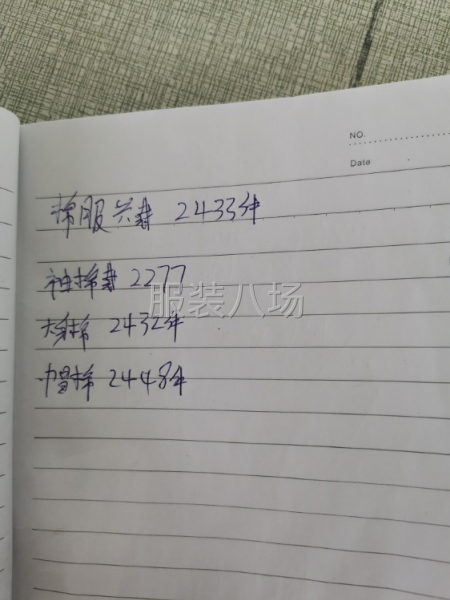 NO.
Date
棉服共寿 2433件
袖棉寿 2277
大身棉 2432件
帽棉 2448件
服装八场